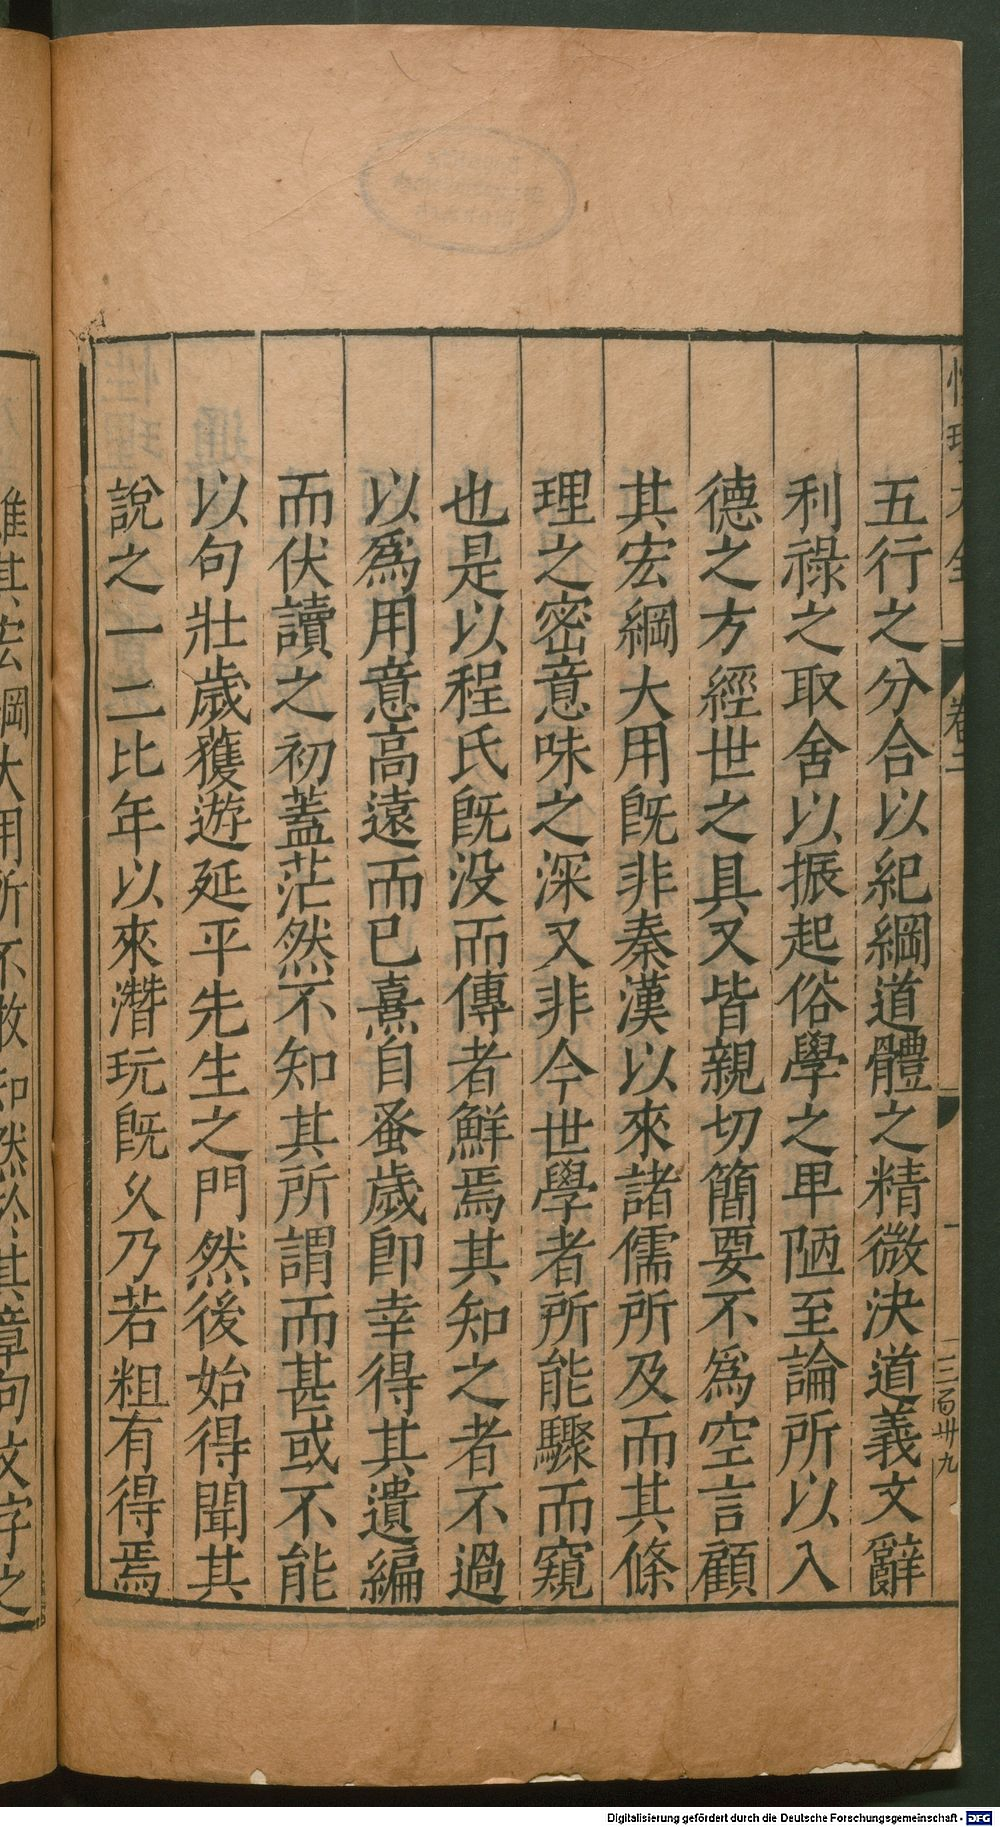 五行之分合以紀綱道體之精微決道義文辭
利祿之取舍以振起俗學之卑陋至論所以入
德之方經世之具又皆親切簡要不為空言顧
其宏綱大用既非秦漢以來諸儒所及而其條
理之密意味之深又非今世學者所能驟而窺
也是以程氏既没而傳者鮮焉其知之者不過
以為用意高遠而已熹自蚤歲即幸得其遺編
而伏讀之初蓋茫然不知其所謂而甚或不能
以句壯歲獲遊延平先生之門然後始得聞其
說之一二比年以來潛玩既久乃若粗有得焉
雖其宏綱大用所不敢知然於其章句文字之
性理大全
卷二
一
三百卅九
Digitalisierung gefördert durch die Deutsche Forschungsgemeinschaft - DFG